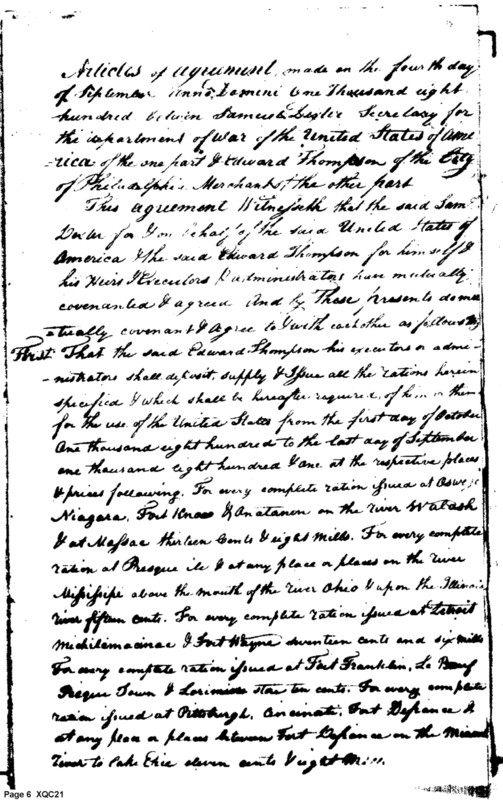 Articles of agreement, made on the fourth day
of September anno Domini One Thousand eight
hundred between Samuel Dexter Secretary for
the department of War of the United States of Ame
-rica of the one part & Edward Thompson of the City
of Philadelphia Merchant of the other part
This agreement Witnesseth that the said Saml
Dexter for & on behalf of the said United States of
America & the said Edward Thompson for himself &
his Heirs Executors & administrators have mutually
covenanted & agreed And by These presents do mu
-tually covenant & agree to & with each other as follows
First That the said Edward Thompson his executors or admi-
-nistrators shall deposit, supply & Issue all the rations herein
specified & which shall be hereafter required of him or them
for the use of the United States from the first day of October
One thousand eight hundred to the last day of September
one thousand eight hundred & one at the respective places
& prices following. For every complete ration issued at Oswego
Niagara, Fort Knox & on the river Wabash
& at Massac thirteen Cents & eight Mills. For every complete
ration at Presque ile & at any place or places on the river
Missisipe above the mouth of the river Ohio & upon the Illinois
river fifteen cents. For every complete ration issued at Detroit
Michilemacinac & Fort Wayne seventeen cents and six mills
For every complete ration issued at Fort Franklin, Le Beuf
Presque Town & store ten cents. For every complete
ration issued at Pittsburgh, Cincinate, Fort Defiance &
at any place or places between Fort Defiance on the Miami
river to Lake Erie eleven cents & eight Mills.
Page 6 XQC21